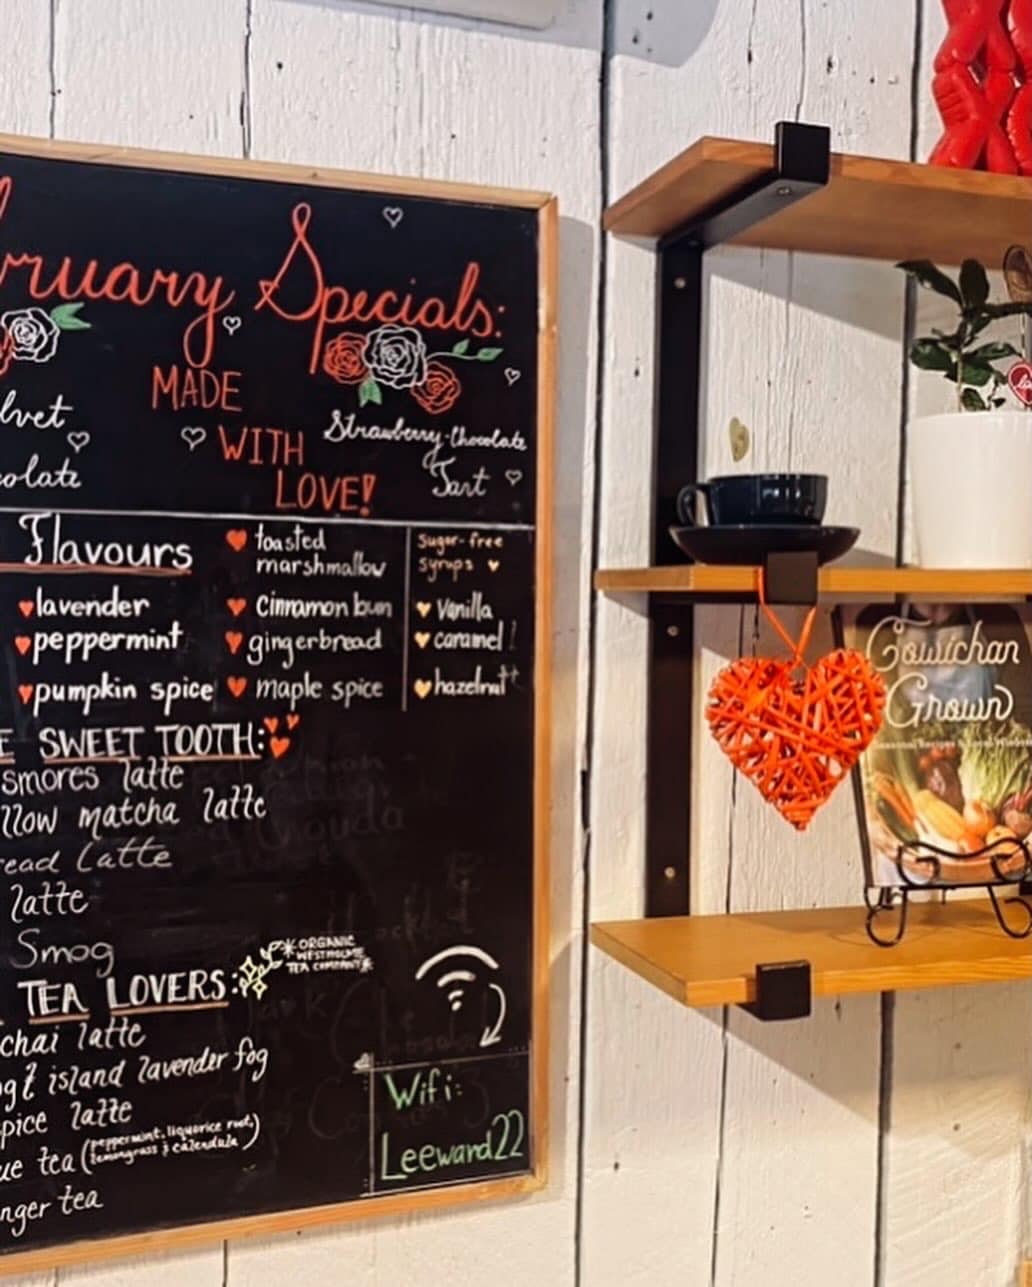 Specials:
MADE
WITH
LOVE!
Strawberry-Chocolate
Tart
Flavours
lavender
peppermint
pumpkin spice
toasted
marshmallow
Cinnamon bun
gingerbread
maple spice
sugar-free
syrups
Vanilla
caramel
hazelnut
SWEET TOOTH:
smores latte
matcha latte
Latte
latte
Smog
TEA LOVERS:
ORGANIC
WESTHOLME
TEA COMPANY
chai latte
island lavender fog
latte
tea (peppermint, liquorice root,
lemongrass & calendula)
tea
Wifi:
Leeward22
Cowichan
Grown